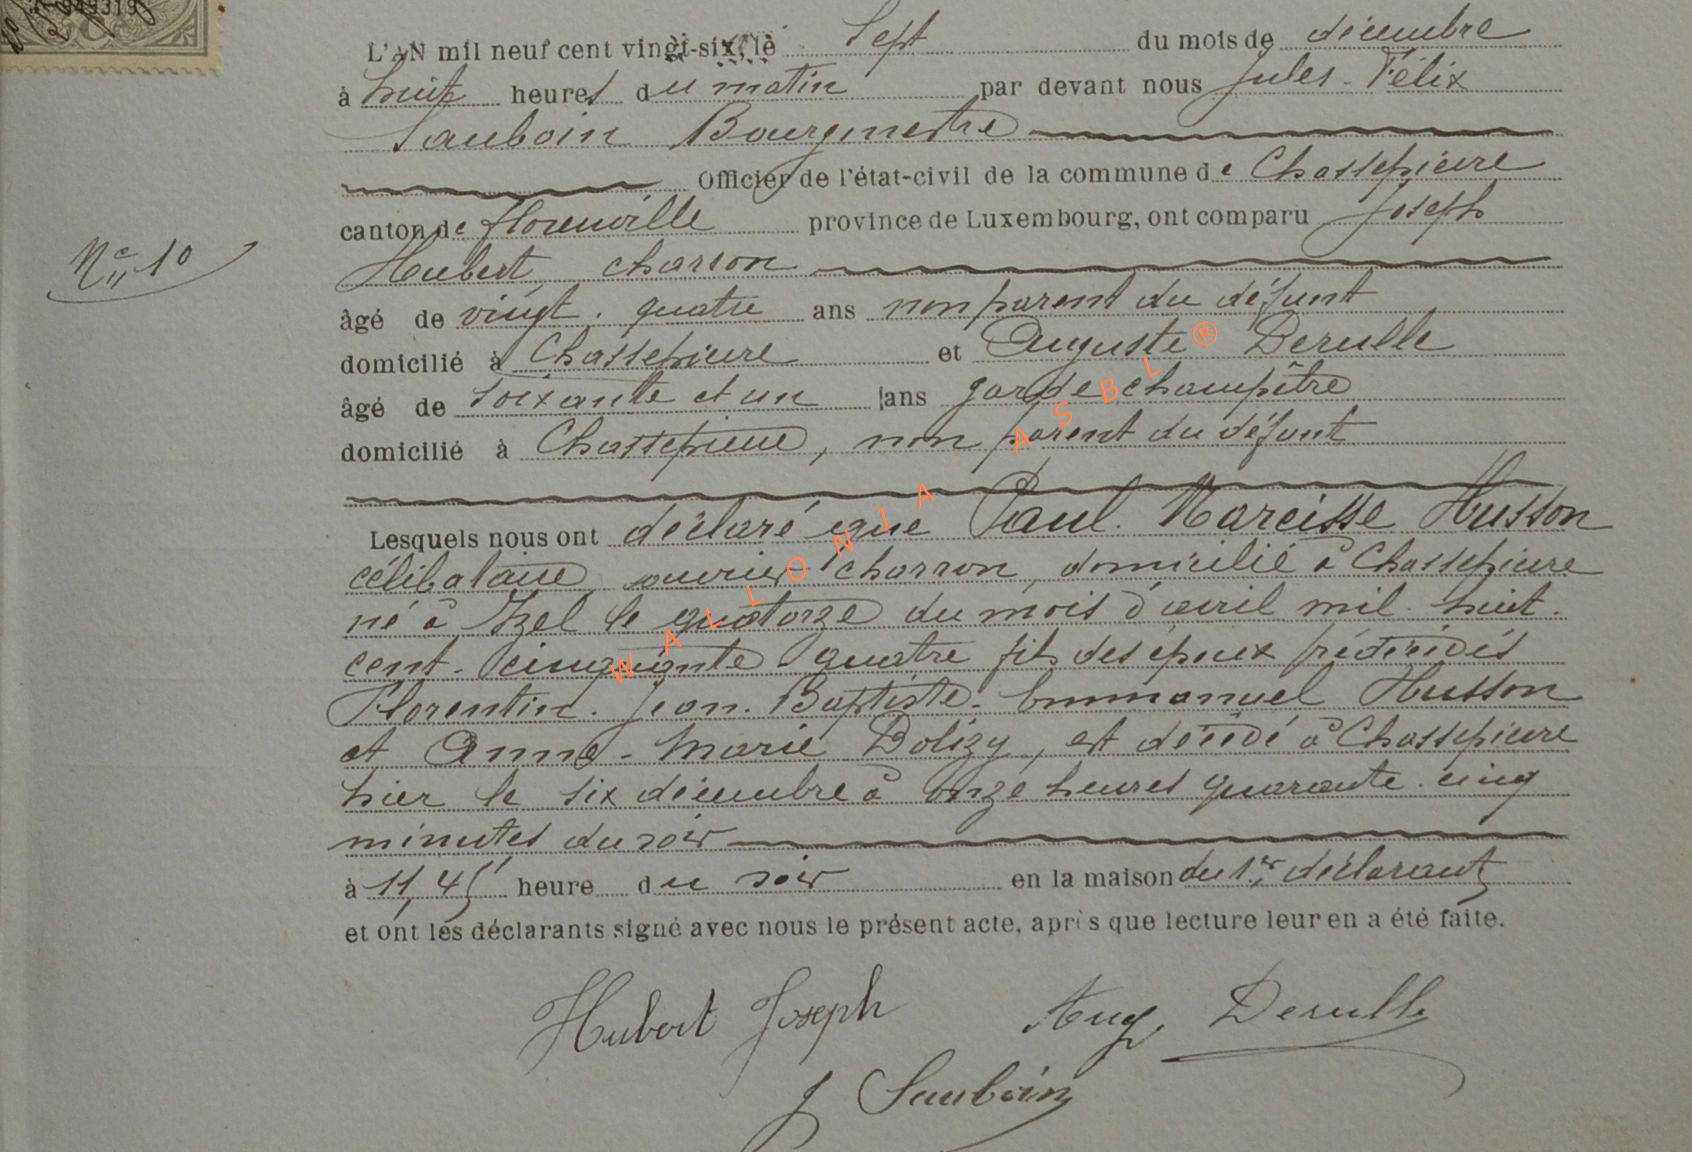 949319
L'AN mil neuf cent vingt-six, le Sept du mois de décembre
à huit heures du matin par devant nous Jules-Félix
Sauboin Bourgmestre
Officier de l'état-civil de la commune de Chassepierre
canton de Florenville province de Luxembourg, ont comparu Joseph
Nº 10
Hubert charron
âgé de vingt-quatre ans non parent du défunt
domicilié à Chassepierre et Auguste Derulle
âgé de soixante et un ans garde champêtre
domicilié à Chassepierre, non parent du défunt
Lesquels nous ont déclaré que Paul-Narcisse Husson
célibataire ouvrier charron, domicilié à Chassepierre
né à Izel le quatorze du mois d'avril mil-huit-
cent-cinquante quatre fils des époux prédécédés
Florentin-Jean-Baptiste-Emmanuel Husson
et Anne-Marie Dolizy, est décédé à Chassepierre
hier le six décembre à onze heures quarante-cinq
minutes du soir
à 11,45 heure du soir en la maison du 1er déclarant
et ont les déclarants signé avec nous le présent acte, après que lecture leur en a été faite.
Hubert Joseph Aug. Derulle
J Sauboin
WALLONIA ASBL ®